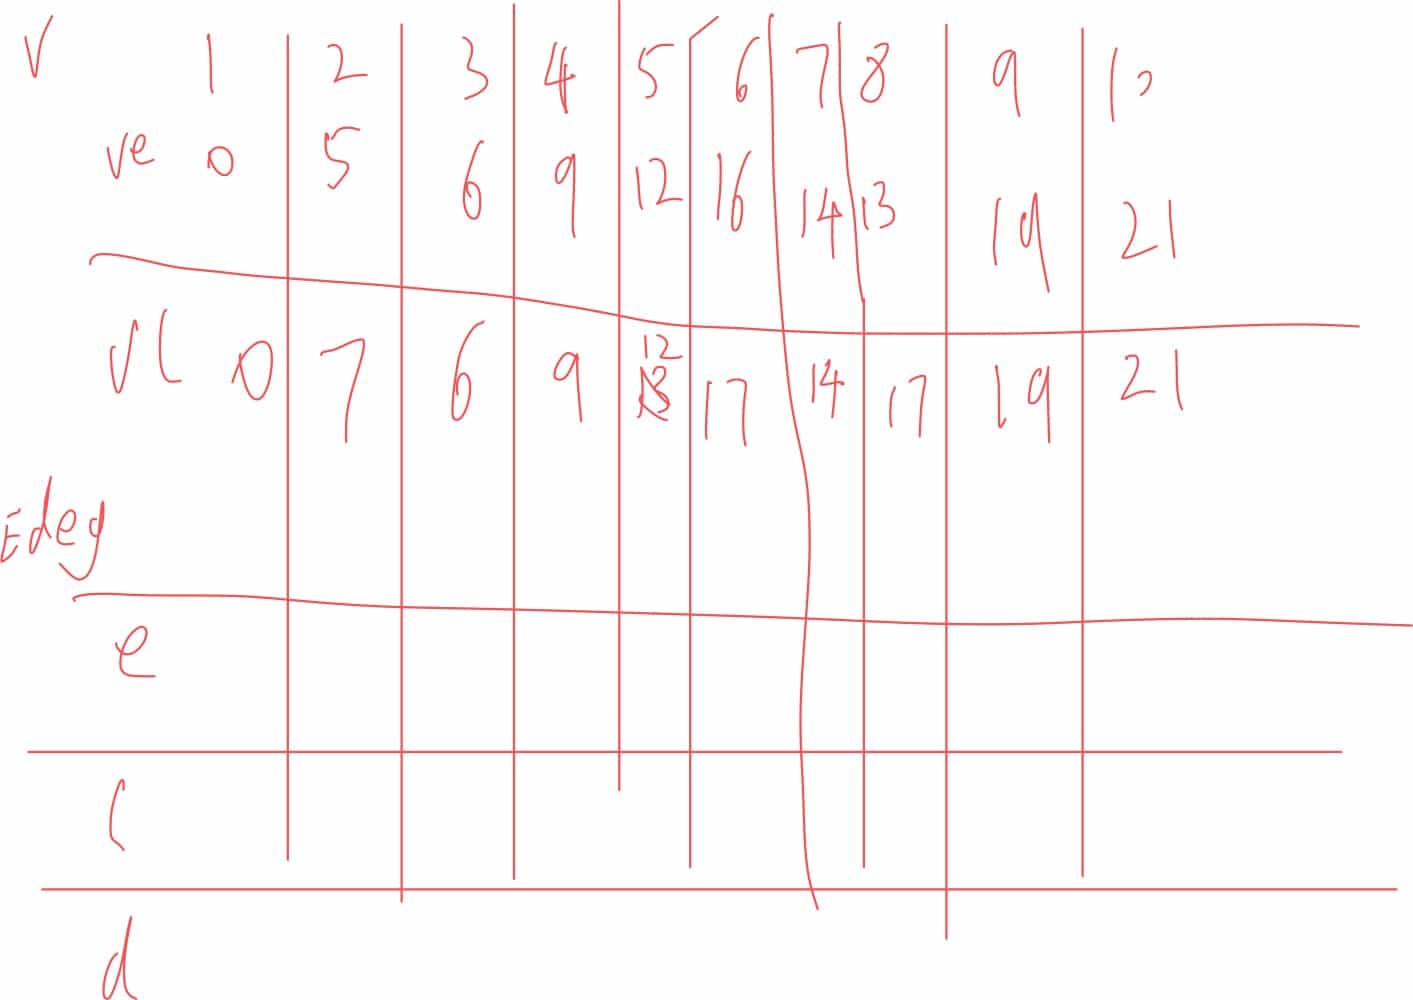 V 1 2 3 4 5 6 7 8 9 10
ve 0 5 6 9 12 16 14 13 19 21
vl 0 7 6 9 12 17 14 17 19 21
Edeg
e
l
d